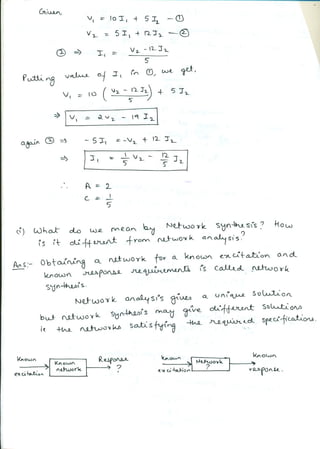 Given,
V₁ = 10 I₁ + 5 I₂ — ①
V₂ = 5 I₁ + 12 I₂ — ②
② ⇒ I₁ = (V₂ - 12 I₂) / 5
Putting value of I₁ in ①, we get,
V₁ = 10 ((V₂ - 12 I₂) / 5) + 5 I₂
⇒ V₁ = 2 V₂ - 19 I₂
again ② ⇒ - 5 I₁ = - V₂ + 12 I₂
⇒ I₁ = 1/5 V₂ - 12/5 I₂
∴ A = 2
C = 1/5
c) What do we mean by Network synthesis? How
is it different from network analysis?
Ans:- Obtaining a network for a known excitation and
known response requirements is called network
synthesis.
Network analysis gives a unique solution
but network synthesis may give different solutions
ie the networks satisfying the required specifications.
known excitation → Known network → Response ?
known excitation → Network ? → known response.